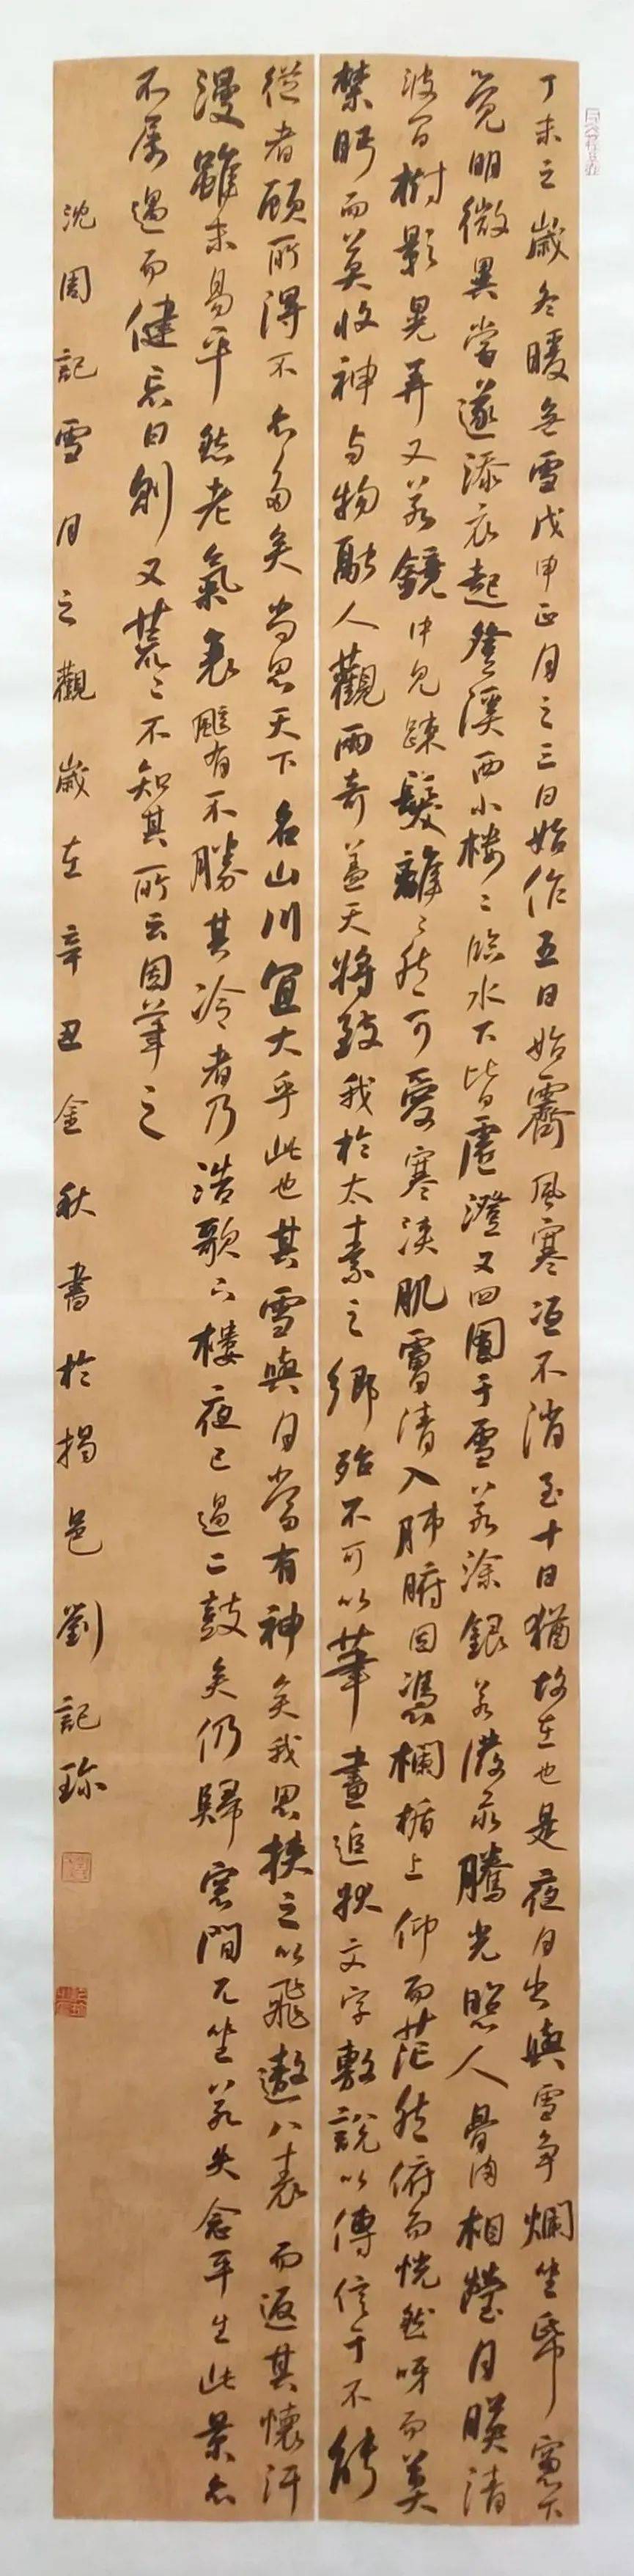 丁未之歲冬暖無雪戊申正月之三日始作五日始霽風寒沍不消至十日猶故在也是夜月出與雪爭爛坐紙窻下
覺明微異常遂添衣起登溪西小樓〻臨水下皆虛澄又四圍于雪若塗銀若潑汞騰光照人骨肉相瑩月暎清
波間樹影晃弄又若鏡中見疎髮離〻然可愛寒浹肌膚清入肺腑因憑欄楯上仰而茫然俯而恍然呀而莫
禁眄而莫收神与物融人觀兩奇蓋天將致我於太素之鄉殆不可以筆畫追狀文字敷說以傳信于不能
從者顧所得不亦多矣尚思天下名山川宜大乎此也其雪與月當有神矣我思挾之以飛遨八表而返其懷汗
漫雖未易平然老氣衰颯有不勝其冷者乃浩歌下樓夜已過二鼓矣仍歸窻間兀坐若失念平生此景亦
不屡遇而健忘日則又荒〻不知其所云因筆之
沈周記雪月之觀歲在辛丑金秋書於揭邑劉記珎